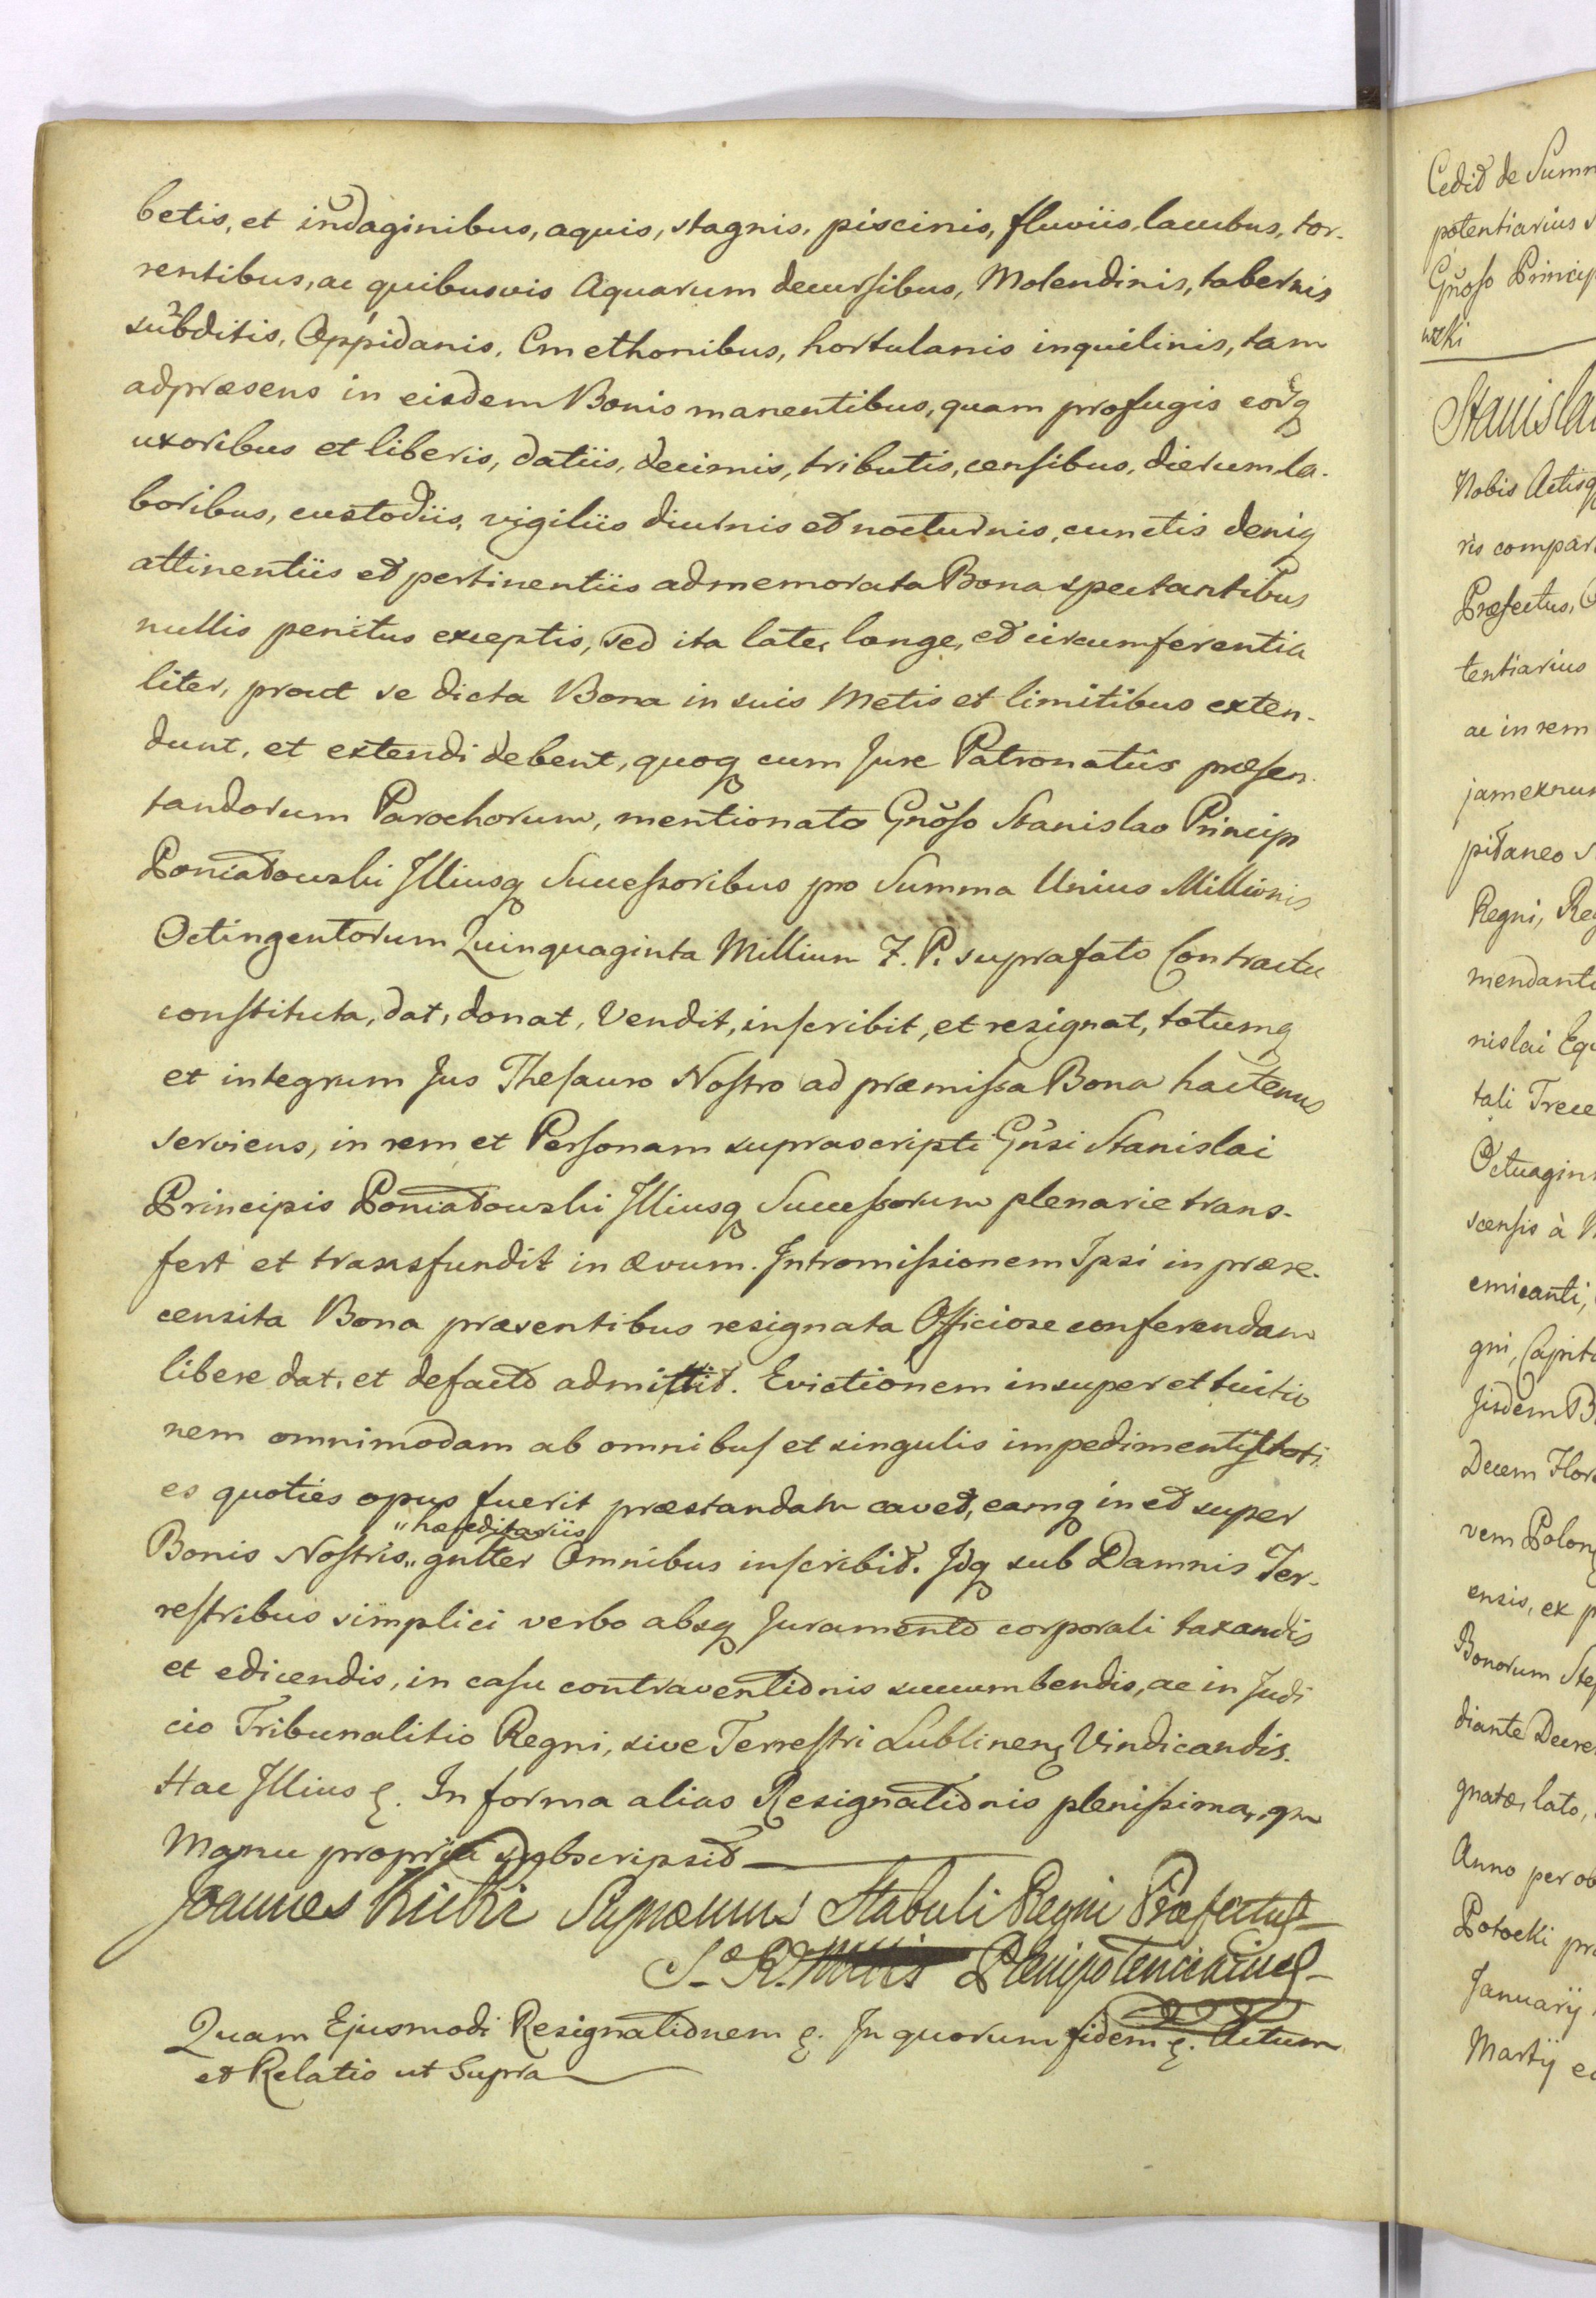 betis, et indaginibus, aquis, stagnis, piscinis, fluviis, lacubus, tor-
rentibus, ac quibusvis Aquarum decursibus, Molendinis, tabernis
subditis, Oppidanis, Cmethonibus, hortulanis inquilinis, tam
adpræsens in eisdem Bonis manentibus, quam profugis eordq
uxoribus et liberis, datiis, decimis, tributis, censibus, dierum la-
boribus, custodiis, vigiliis diurnis et nocturnis, cunctis deniq
attinentiis et pertinentiis ad memorata Bona spectantibus
nullis penitus exceptis, sed ita late, longe, et circumferentia
liter, prout se dicta Bona in suis Metis et limitibus exten-
dunt, et extendi debent, quoq cum Jure Patronatûs præsen
tandorum Parochorum, mentionato Gnõso Stanislao Principi
Poniatowski Illiusq Successoribus pro Summa Unius Millionis
Octingentorum Quinquaginta Millium F. P. suprafato Contractu
constituta, dat, donat, Vendit, inscribit, et resignat, totumq
et integrum Jus Thesauro Nostro ad præmissa Bona hactenus
serviens, in rem et Personam suprascripti Gnsi Stanislai
Principis Poniatowski Illiusq Successorum plenarie trans-
fert et transfundit in ævum. Intromissionem Ipsi in prære-
censita Bona præsentibus resignata Officiose conferendam
libere dat, et defacto admittit. Evictionem insuper et tuitio
nem omnimodam ab omnibus et singulis impedimentis toti
es quoties opus fuerit præstandam cavet, eamq in et super
" hæreditariis
Bonis Nostris " gnlter Omnibus inscribit. Idq sub Damnis Ter-
restribus simplici verbo absq Juramento corporali taxandis
et edicendis, in casu contraventionis succumbendis, ac in Judi
cio Tribunalitio Regni, sive Terrestri Lublinen Vindicandis.
Hac Illius . In forma alias Resignationis plenissima, qm
Manu propria subscripsit
Joannes Kicki Supremus Stabuli Regni Præfectus
S. R. Mttis Plenipotenciarius
Quam Ejusmodi Resignationem . In quorum fidem . Actum
et Relatio ut Supra
Cedit de Summ
potentiarius s
Gnoso Princip
wski
Stanisla
Nobis Actisq
ris compar
Præfectus,
tentiarius
ac in rem
jam exnun
pitaneo s
Regni, Reg
mendant
nislai Equ
tali Trece
Octuagin
scensis à
emicanti,
gni, Capit
Jisdem B
Decem Flor
vem Polon
ensis, ex p
Bonorum Ste
diante Decre
gnatæ, lato,
Anno per ob
Potocki pr
Januarij
Martij e